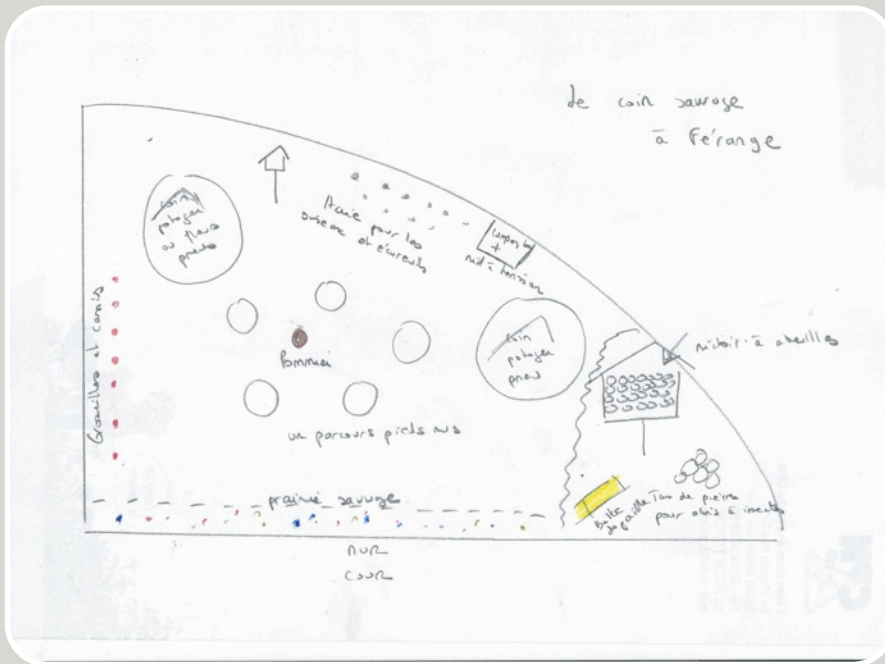 Le coin sauvage
à Férange
Coin
potager
ou fleurs
pneus
pour les
oiseaux et écureuils
Compost
+
nid à hérisson
Groseilles et cassis
Pommier
Coin
potager
pneus
nichoir à abeilles
un parcours pieds nus
prairie sauvage
Botte
de paille
Tas de pierres
pour abris à insectes
MUR
COUR